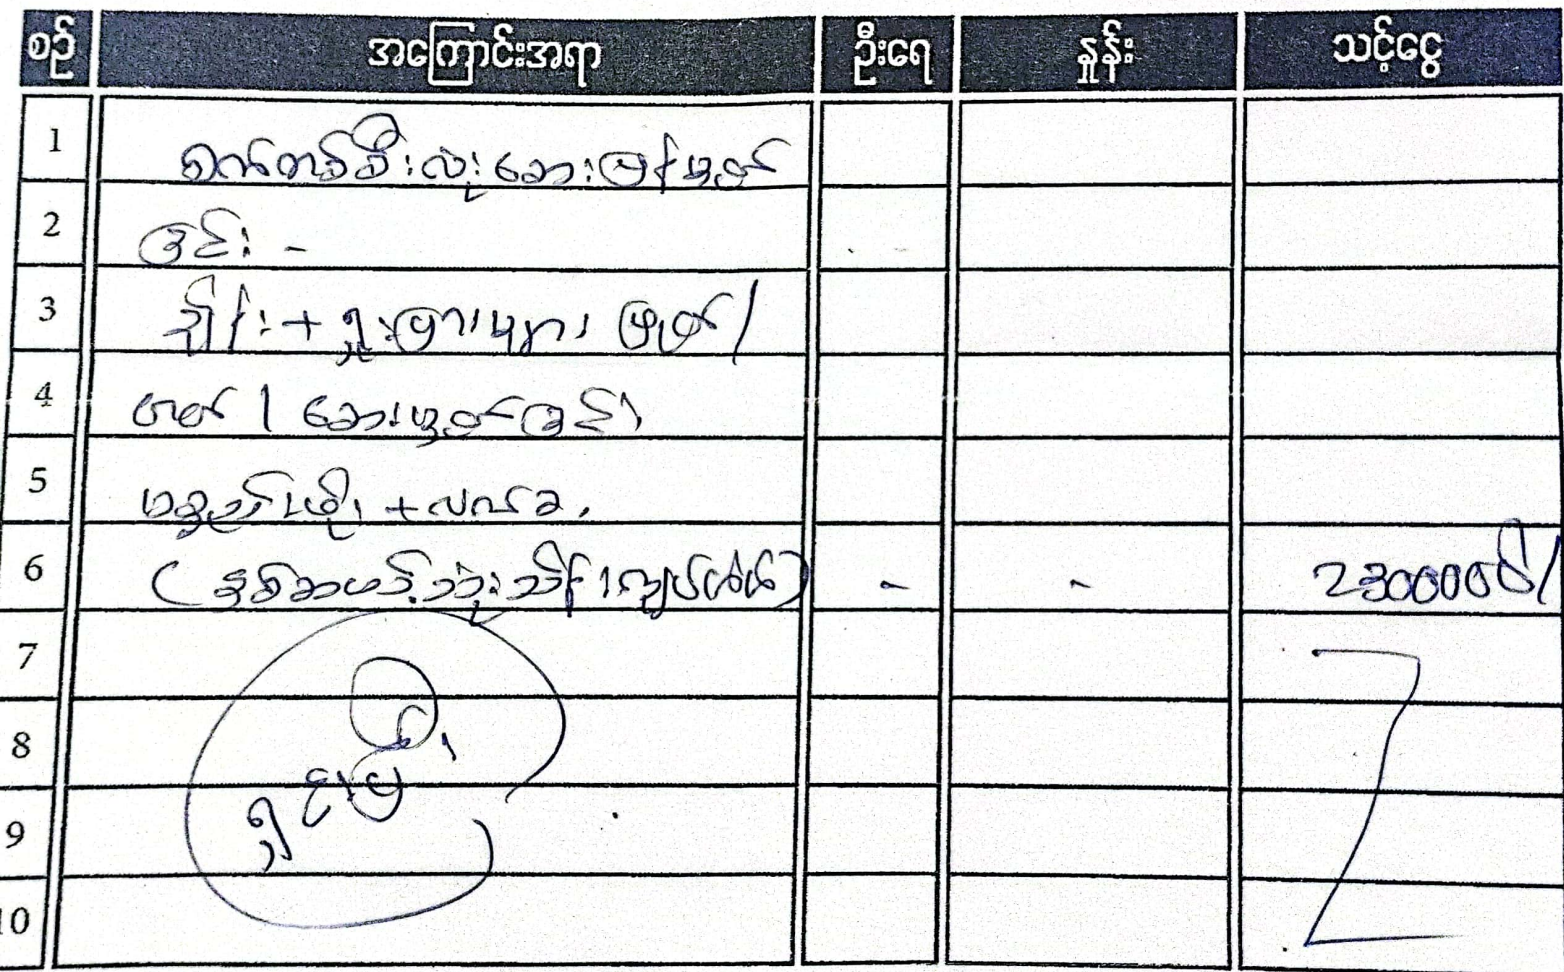 စဉ် အကြောင်းအရာ ဦးရေ နှုန်း သင့်ငွေ
1 စက်တစ်စီးလုံးဆေးပြန်မှုတ်
2 ခြင်း -
3 ချိန်း + ရှူးပြားများ ဖြုတ်/
4 တတ် / ဆေးမှုတ်ခြင်း
5 ပစ္စည်းဖိုး + လက်ခ
6 (နှစ်ဆယ့်သုံးသိန်းကျပ်တိတိ) - - 2300000/
7
8 ရှင်းပြီး
9
10